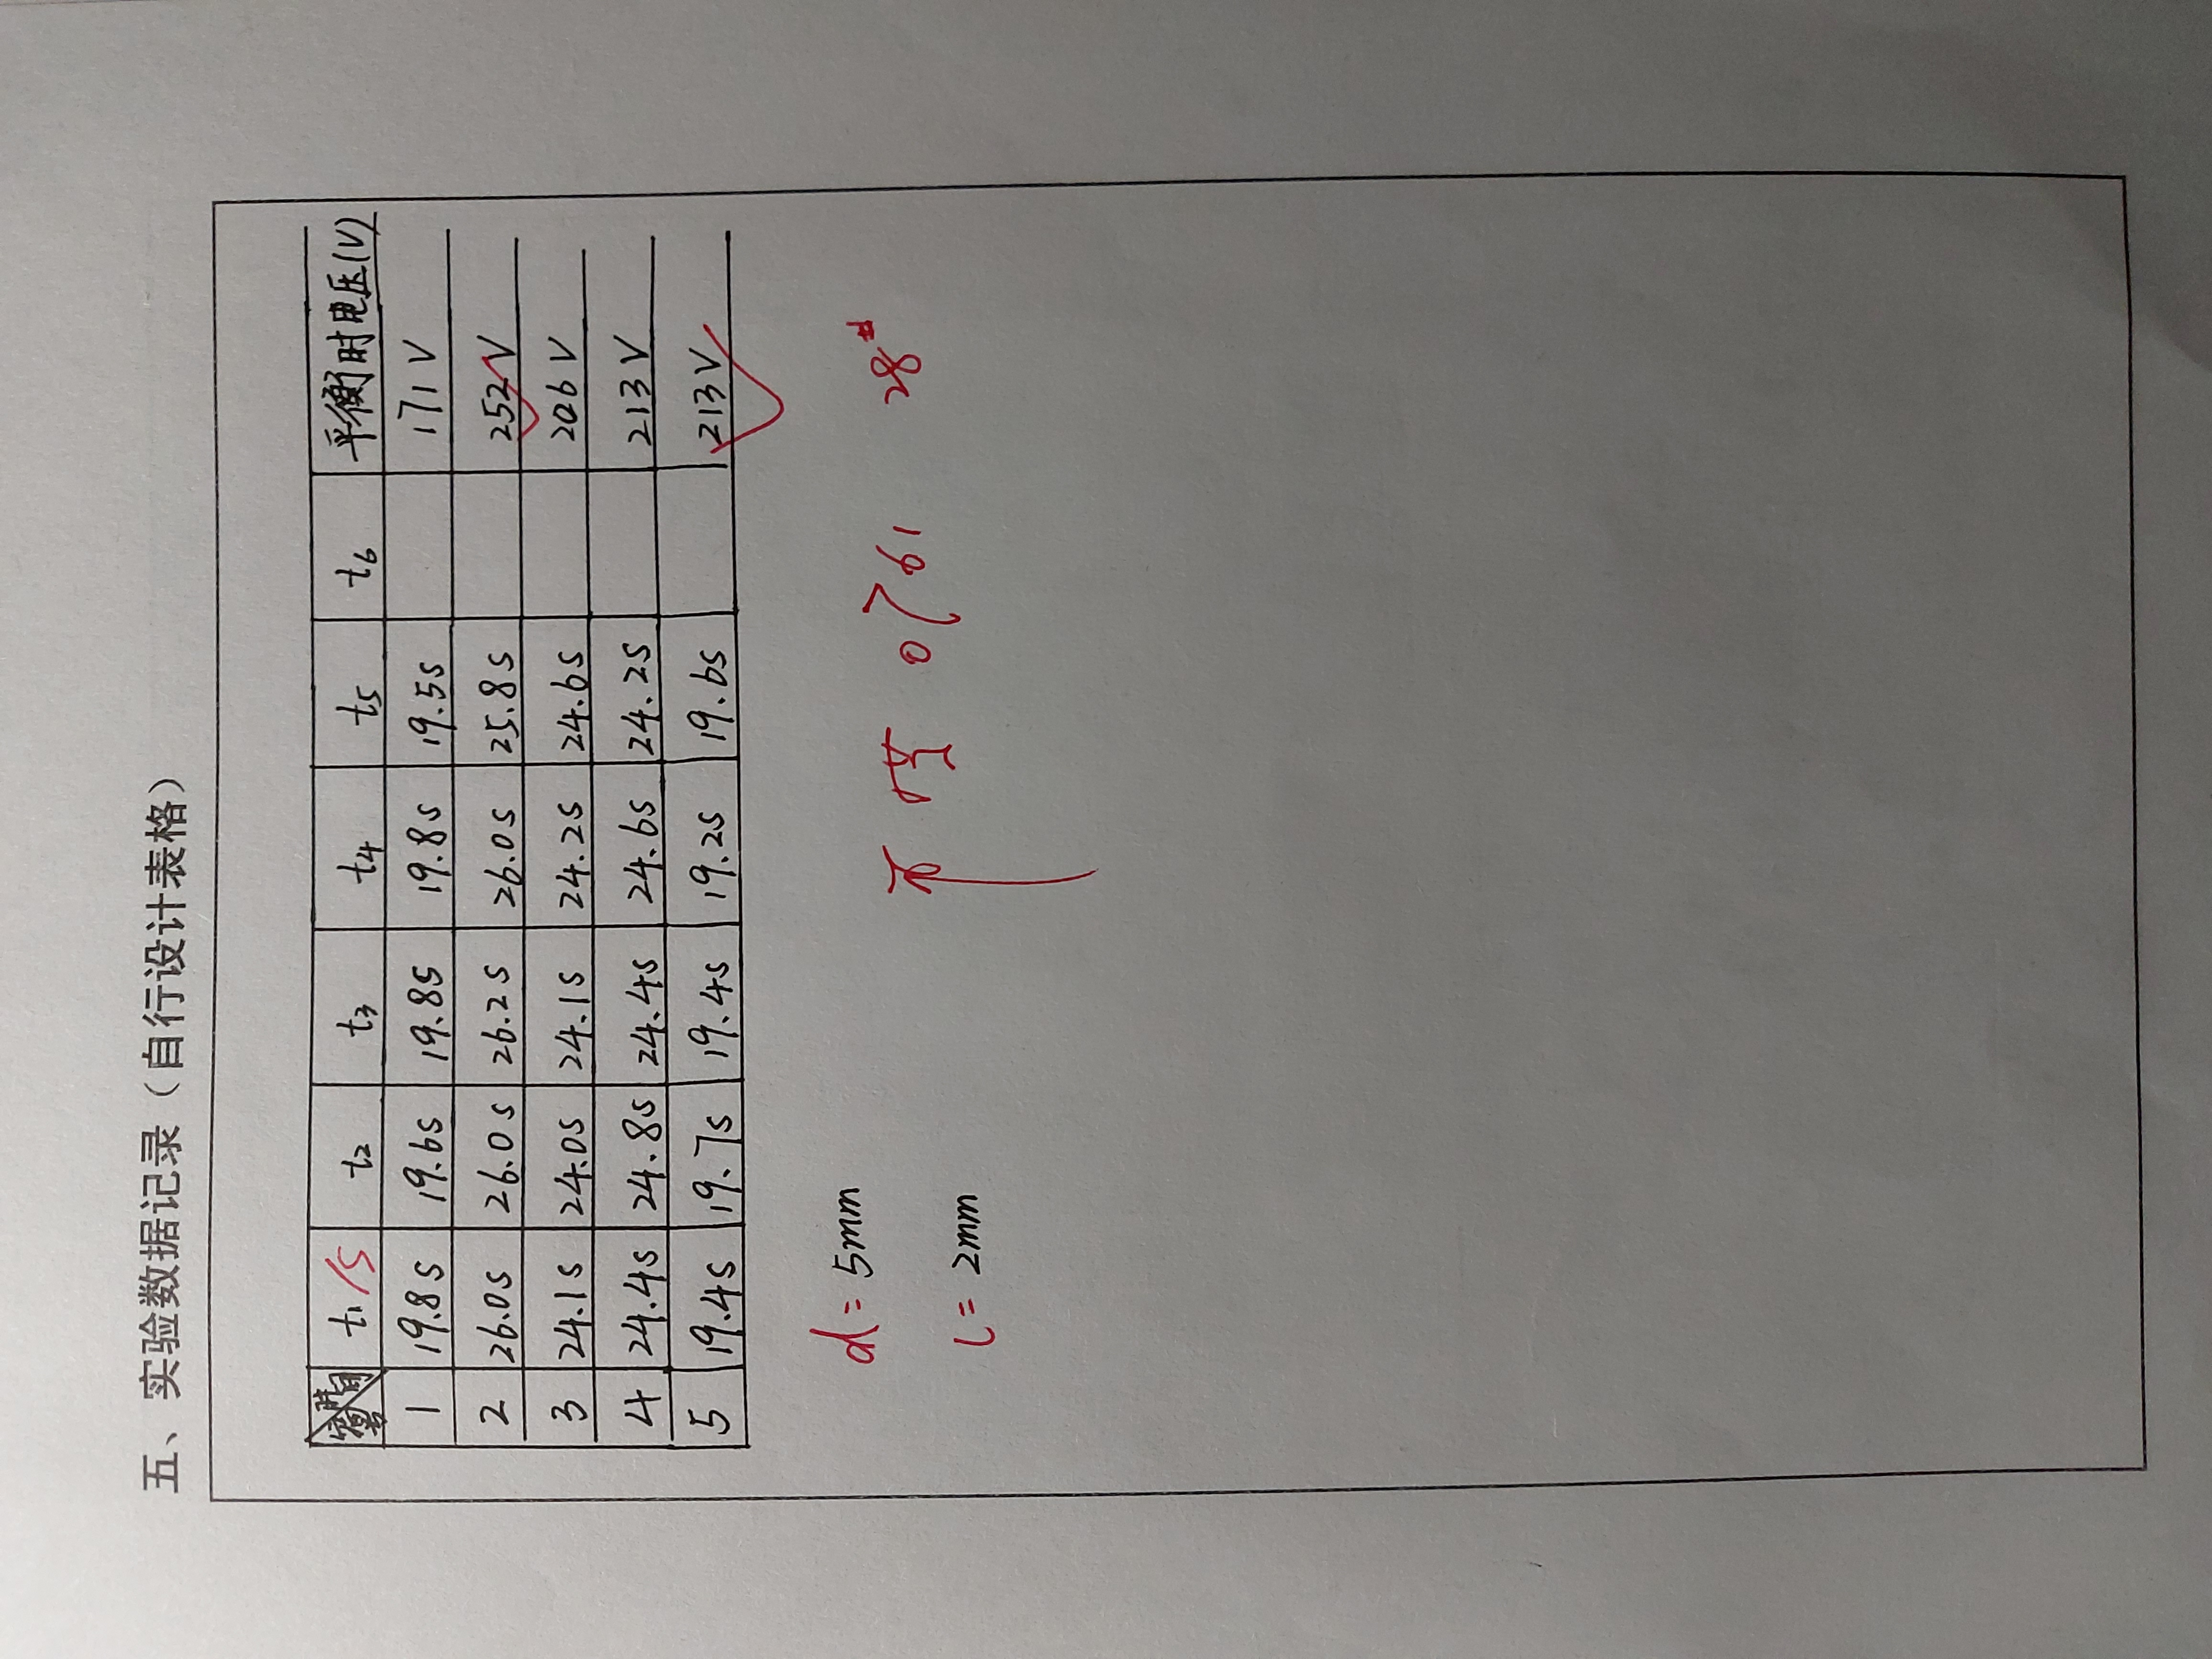 五、实验数据记录（自行设计表格）
t₁/s t₂ t₃ t₄ t₅ t₆ 平衡时电压(V)
1 19.8s 19.6s 19.8s 19.8s 19.5s 171V
2 26.0s 26.0s 26.2s 26.0s 25.8s 252V
3 24.1s 24.0s 24.1s 24.2s 24.6s 206V
4 24.4s 24.8s 24.4s 24.6s 24.2s 213V
5 19.4s 19.7s 19.4s 19.2s 19.6s 213V
d = 5mm
0761 28#
l = 2mm